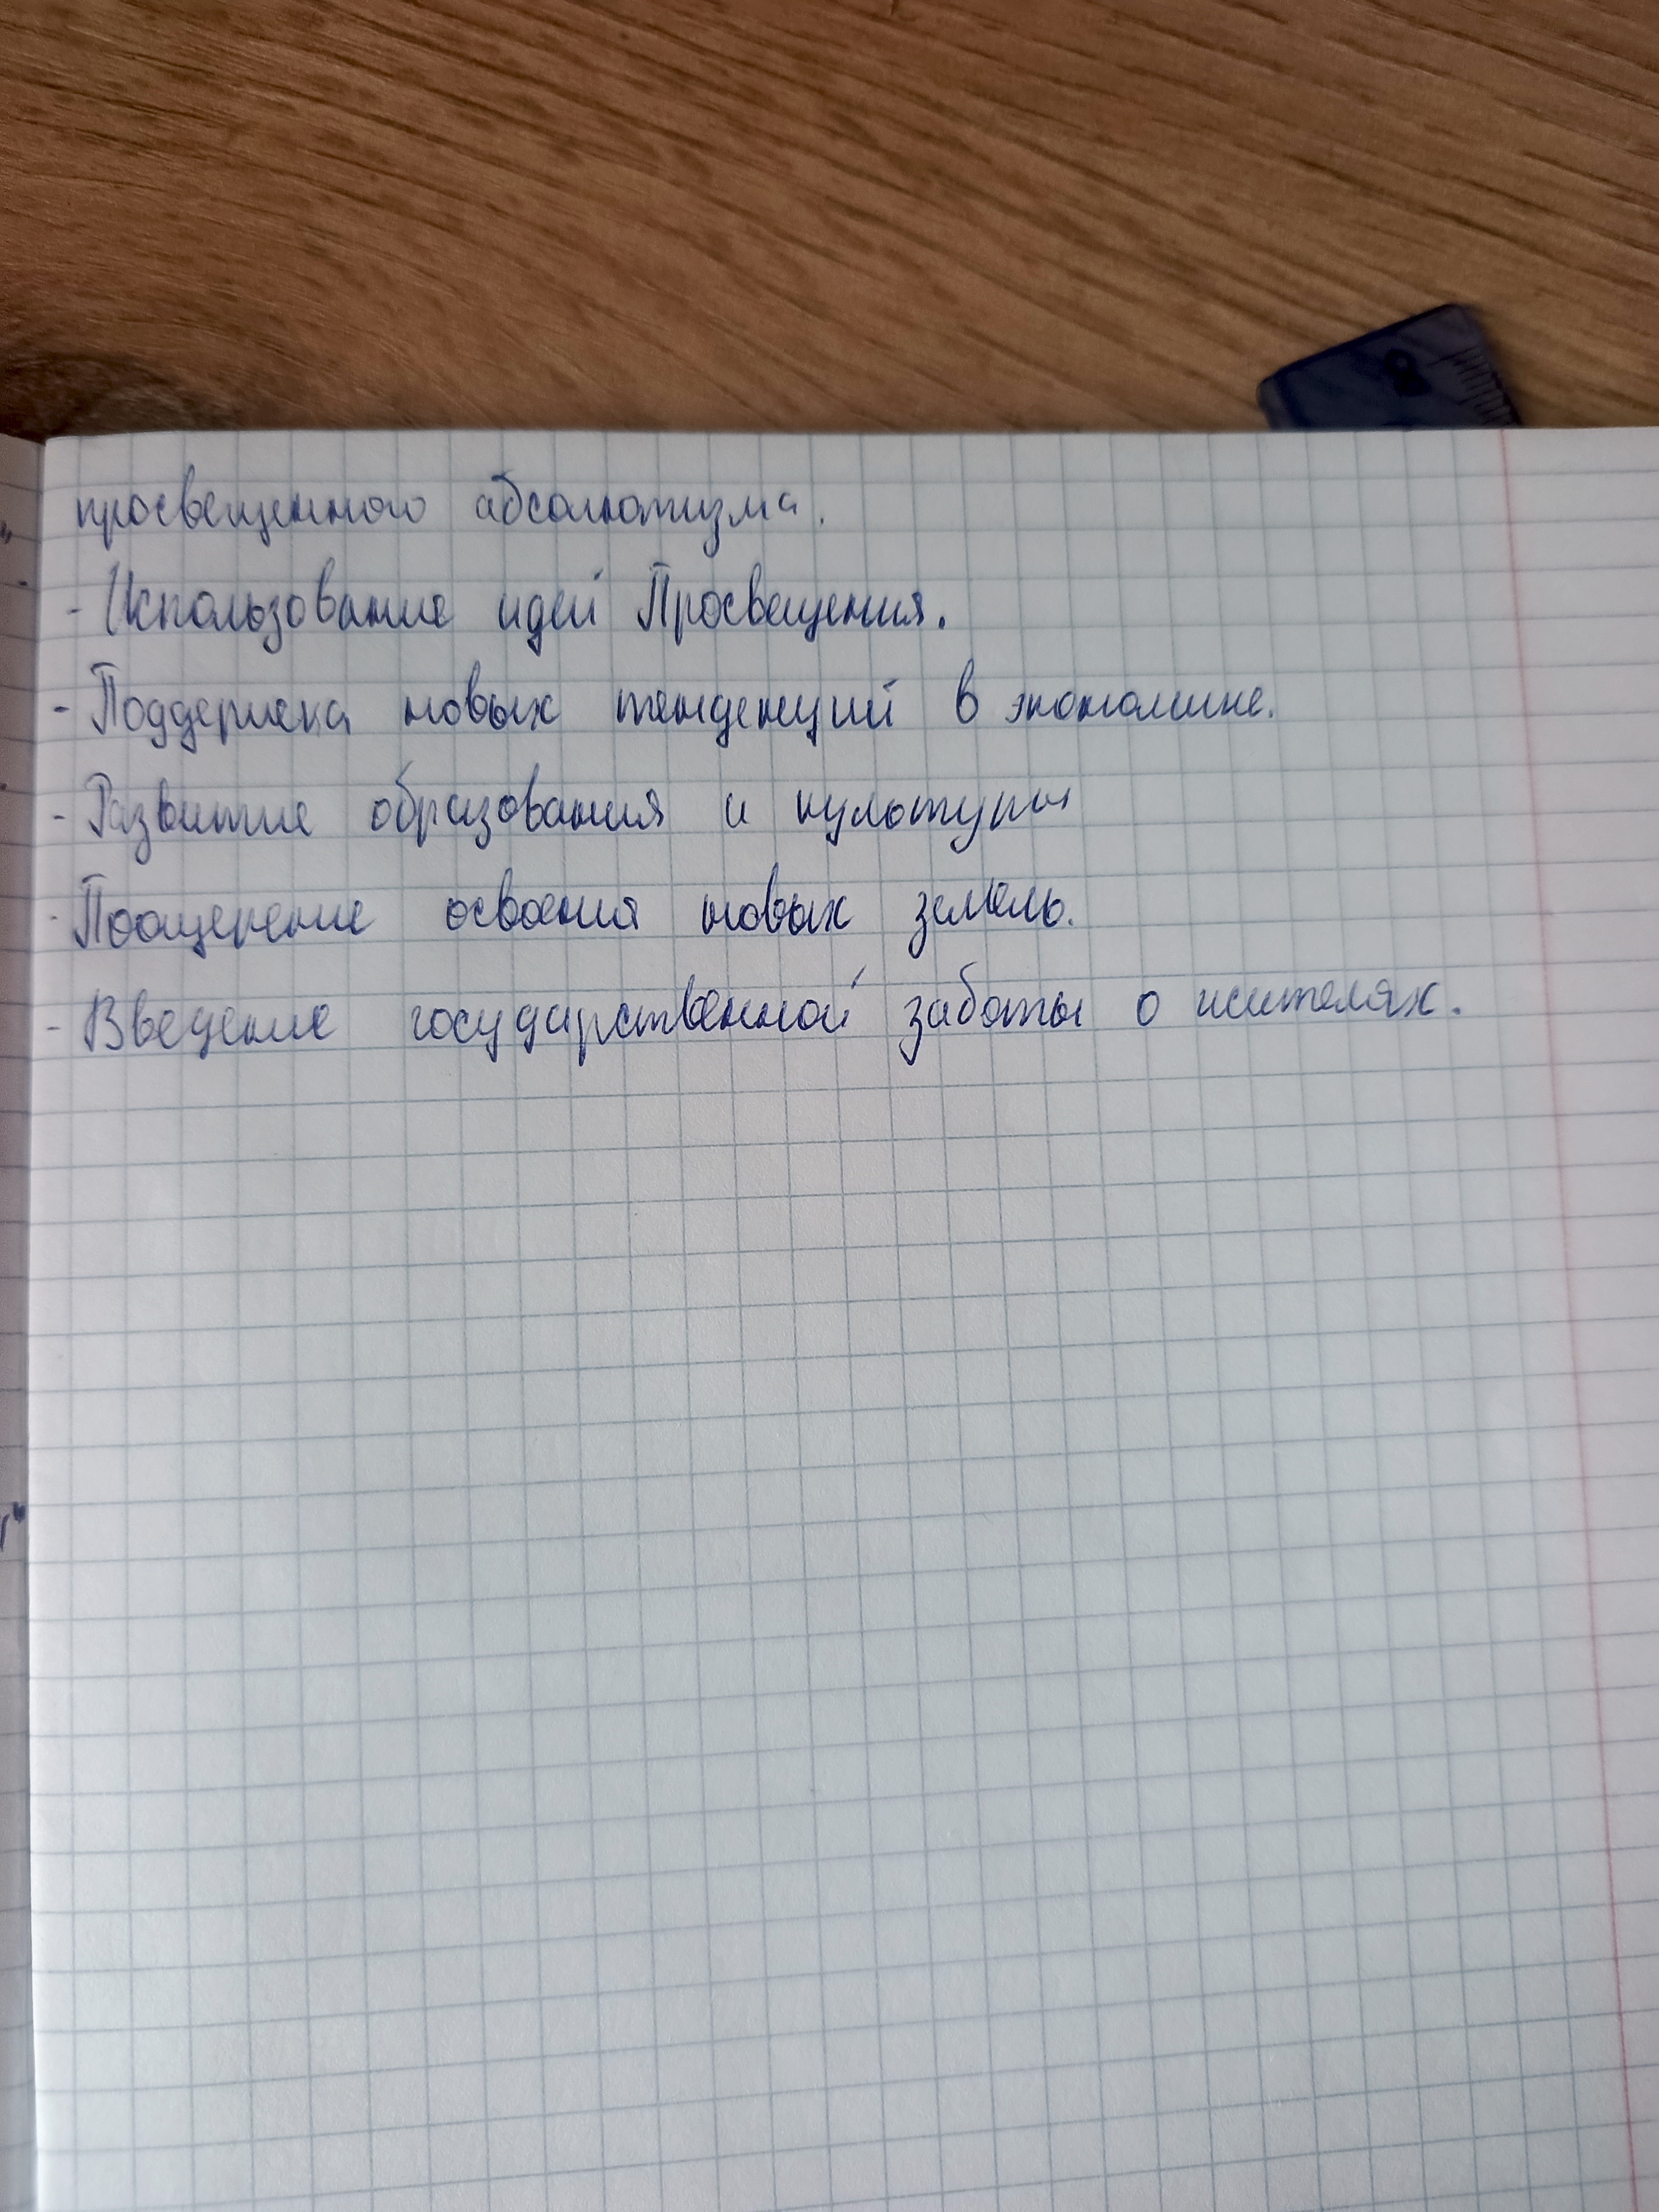 просвещенного абсолютизма.
- Использование идей Просвещения.
- Поддержка новых тенденций в экономике.
- Развитие образования и культуры
- Поощрение освоения новых земель.
- Введение государственной заботы о жителях.
8